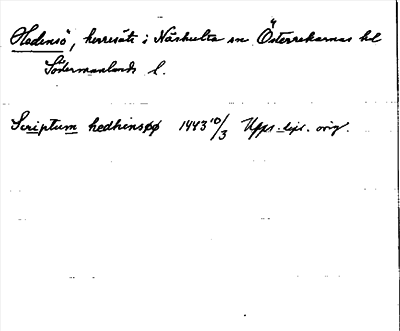 Hedensö, herresäte i Näshulta sn Österrekarnas hd
Södermanlands l.
Scriptum hedhinsøø 1443 10/3 Upps. dipl. orig.